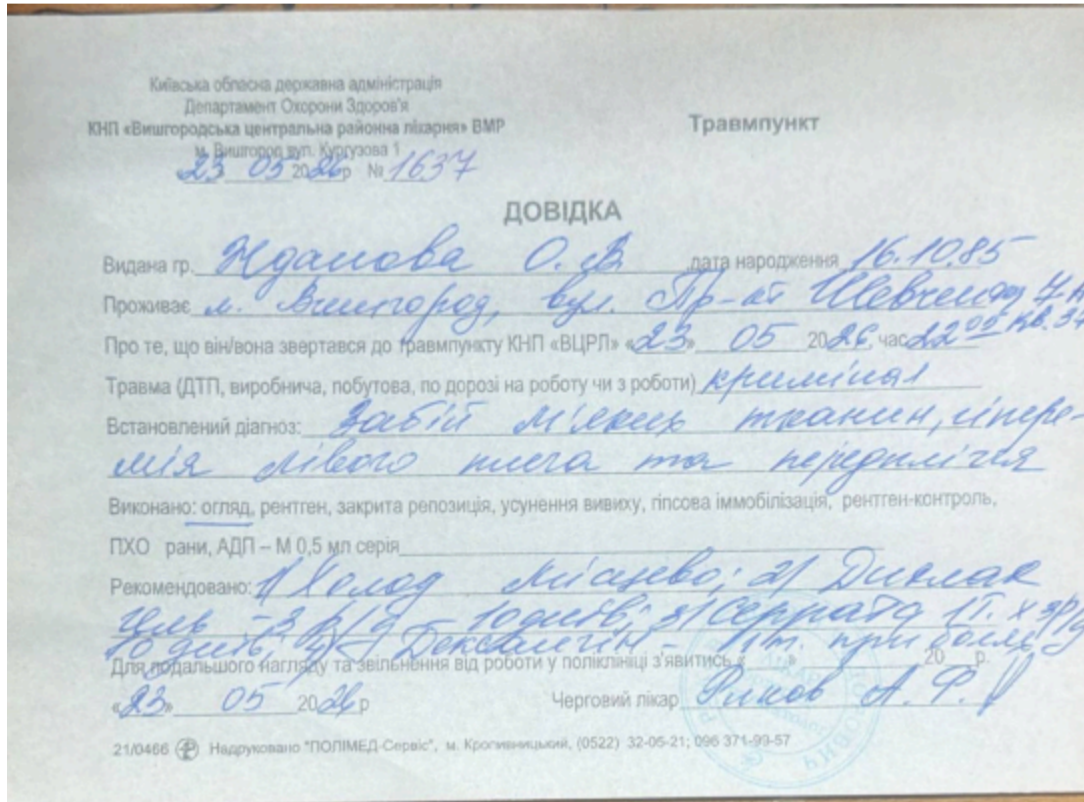 Київська обласна державна адміністрація
Департамент Охорони Здоров'я
КНП «Вишгородська центральна районна лікарня» ВМР
м. Вишгород вул. Кургузова 1
23 05 2026р № 1637
Травмпункт
ДОВІДКА
Видана гр. Жданова О. В. дата народження 16.10.85
Проживає м. Вишгород, вул. Пр-кт Шевченка, 7
Про те, що він/вона звертався до травмпункту КНП «ВЦРЛ» «23» 05 2026, час 22 05 кв. 37
Травма (ДТП, виробнича, побутова, по дорозі на роботу чи з роботи) кримінал
Встановлений діагноз: Забій м'яких тканин, гіпере-
мія лівого плеча та передпліччя
Виконано: огляд, рентген, закрита репозиція, усунення вивиху, гіпсова іммобілізація, рентген-контроль,
ПХО рани, АДП – М 0,5 мл серія
Рекомендовано: 1) Холод місцево; 2) Диклак
гель - 3 р/д 10 днів; 3) Серрата 1т. х 3р/д
10 днів; 4) Дексалгін - 1т. при болях
Для подальшого нагляду та звільнення від роботи у поліклініці з'явитись « » 20 р.
«23» 05 2026 р Черговий лікар А. Ф.
21/0466 Надруковано "ПОЛІМЕД-Сервіс", м. Кропивницький, (0522) 32-05-21; 096 371-99-57